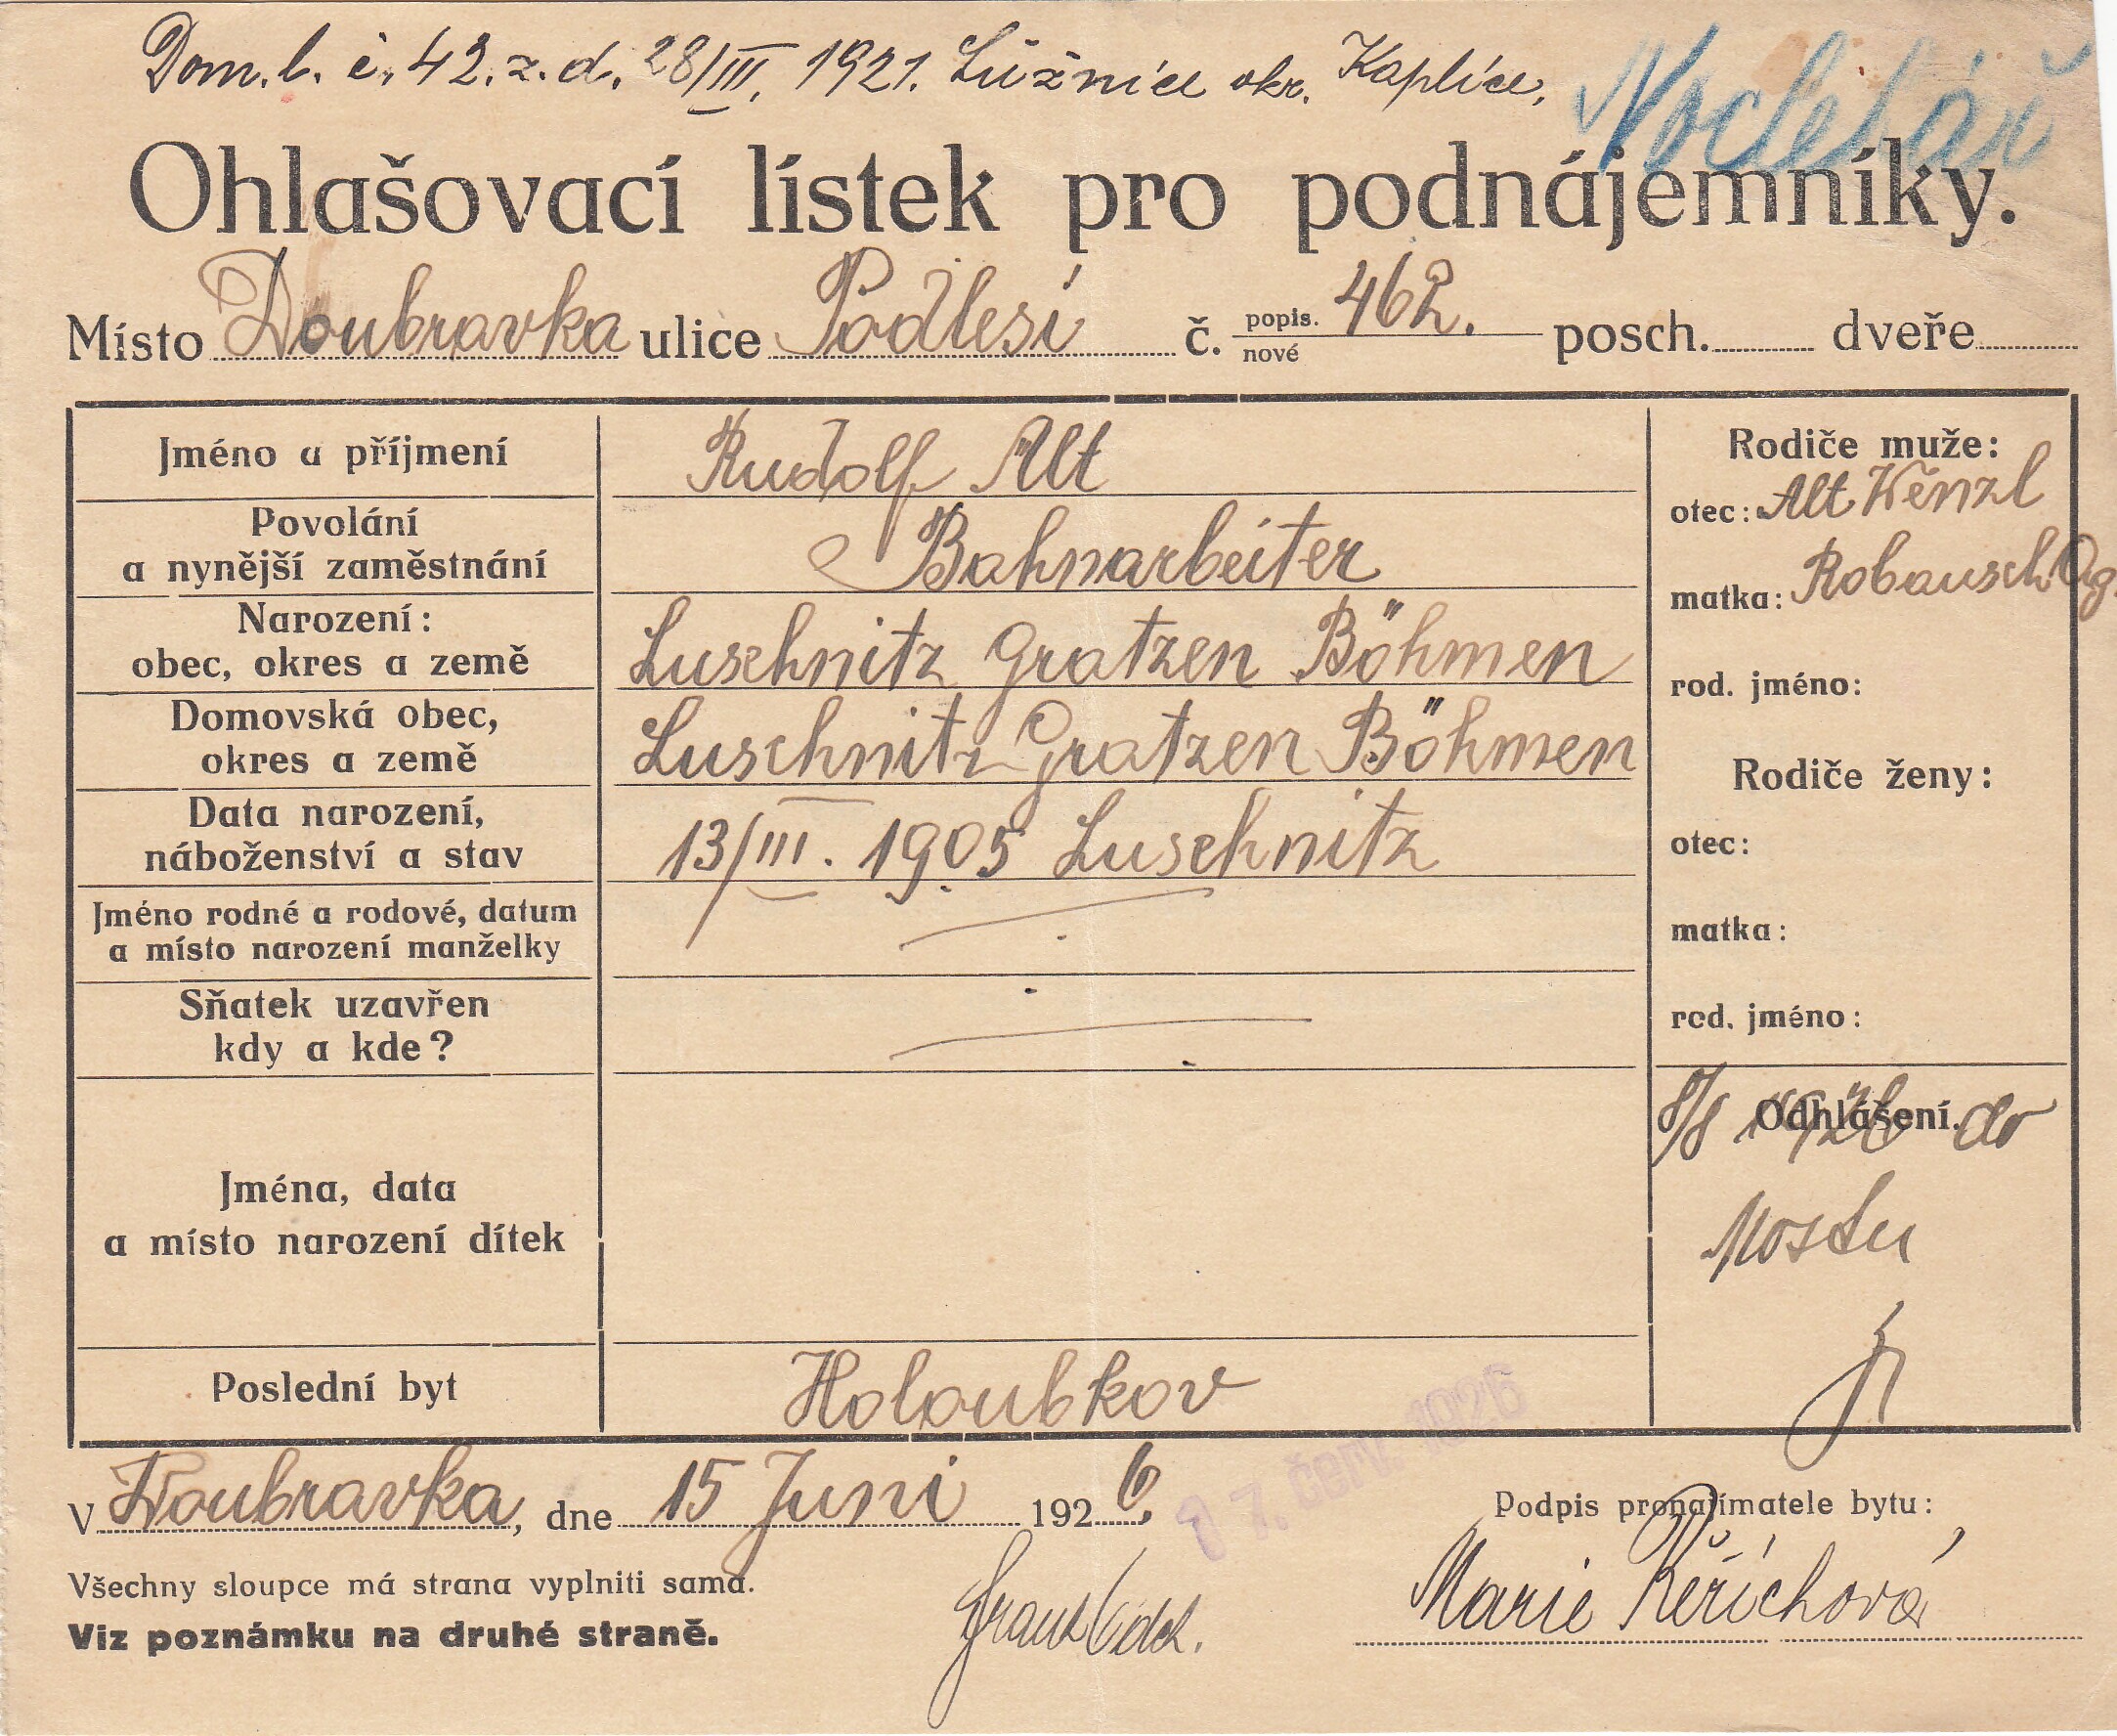 Dom. l. č. 42. z. d. 28/III. 1921. Lužnice okr. Kaplice.
Nocležář
Ohlašovací lístek pro podnájemníky.
Místo Doubravka ulice Podlesí č. popis. 462. posch. dveře
nové
Jméno a příjmení Rudolf Alt
Povolání
a nynější zaměstnání Bahnarbeiter
Narození:
obec, okres a země Luschnitz Gratzen Böhmen
Domovská obec,
okres a země Luschnitz Gratzen Böhmen
Data narození,
náboženství a stav 13/III. 1905 Luschnitz
Jméno rodné a rodové, datum
a místo narození manželky
Sňatek uzavřen
kdy a kde?
Jména, data
a místo narození dítek
Poslední byt Holoubkov
Rodiče muže:
otec: Alt Wenzl
matka: Robausch Ag.
rod. jméno:
Rodiče ženy:
otec:
matka:
rod. jméno:
Odhlášení.
8/8 1926 do
Mostu
17. červ. 1926
V Doubravka, dne 15 Juni 1926.
Podpis pronajímatele bytu:
Všechny sloupce má strana vyplniti sama.
Viz poznámku na druhé straně.
Franz
Marie Keříchová